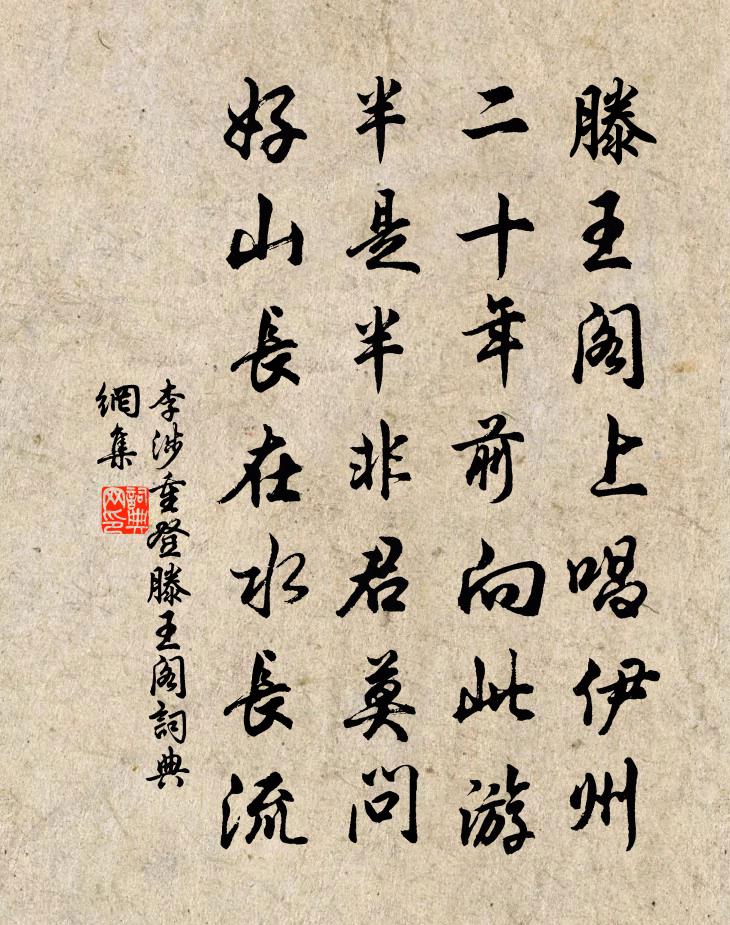 滕王阁上唱伊州
二十年前向此游
半是半非君莫问
好山長在水長流
李涉重登滕王阁詞典
網集
詞典
网印